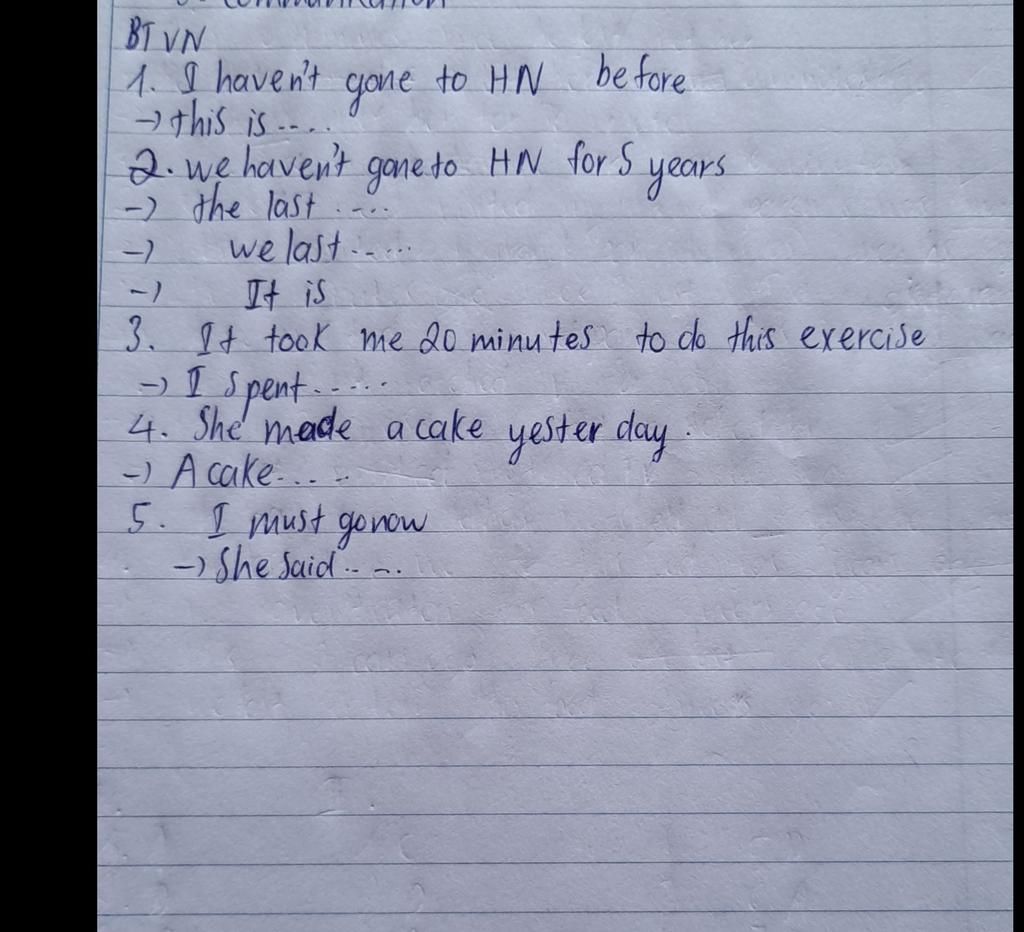 BT VN
1. I haven't gone to HN before
→ this is ....
2. we haven't gone to HN for 5 years
→ the last ....
→ we last .....
→ It is
3. It took me 20 minutes to do this exercise
→ I spent .....
4. She made a cake yesterday.
→ A cake ....
5. I must go now
→ She said ....